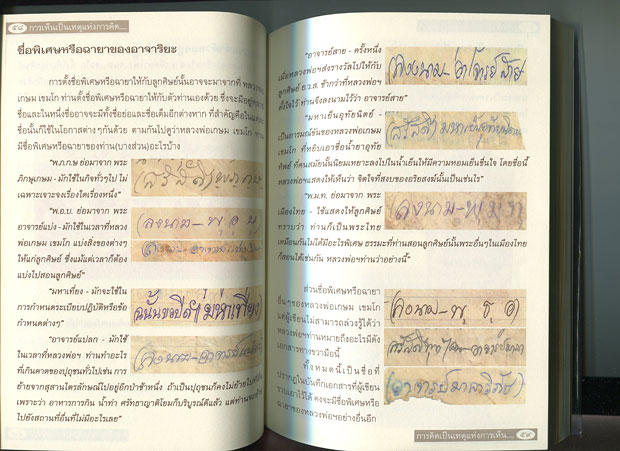 ๕๘ การเห็นเป็นเหตุแห่งการคิด....
ชื่อพิเศษหรือฉายาของอาจาริยะ
การตั้งชื่อพิเศษหรือฉายาให้กับลูกศิษย์นั้นอาจจะมาจากที่ หลวงพ่อ
เกษม เขมโก ท่านตั้งชื่อพิเศษหรือฉายาให้กับตัวท่านเองด้วย ซึ่งจะมีอยู่หลาย
ชื่อและในหนึ่งชื่ออาจจะมีทั้งชื่อย่อและชื่อเต็มอีกต่างหาก ที่สำคัญคือในแต่ละ
ชื่อนั้นก็ใช้ในโอกาสต่าง ๆกันด้วย ตามกันไปดูว่าหลวงพ่อเกษม เขมโก ท่าน
มีชื่อพิเศษหรือฉายาของท่าน(บางส่วน)อะไรบ้าง
"พ.ภ.กษ ย่อมาจาก พระ
ภิกษุเกษม - มักใช้ในกิจทั่วๆไป ไม่
เฉพาะเจาะจงเรื่องใดเรื่องหนึ่ง"
"พ.อ.บ. ย่อมาจาก พระ
อาจารย์แบ่ง - มักใช้ในเวลาที่หลวง
พ่อเกษม เขมโก แบ่งสิ่งของต่างๆ
ให้แก่ลูกศิษย์ ซึ่งแม้แต่เวลาก็ต้อง
แบ่งไปสอนลูกศิษย์"
"มหาเที่ยง - มักจะใช้ใน
การกำหนดระเบียบปฏิบัติหรือข้อ
กำหนดต่างๆ"
ฉนั้นขอปิด(มหาเที่ยง)
"อาจารย์แปลก - มักใช้
ในเวลาที่หลวงพ่อฯ ท่านทำอะไร
ที่เกินคาดของปุถุชนทั่วไปเช่น การ
ย้ายจากสุสานไตรลักษณ์ไปอยู่อีกป่าช้าหนึ่ง ถ้าเป็นปุถุชนก็คงไม่ย้ายไป
เพราะว่า อาหารการกิน น้ำท่า ศรัทธาญาติโยมก็บริบูรณ์ดีแล้ว แต่ท่าน
ไปยังสถานที่อื่นที่ไม่มีอะไรเลย"
"อาจารย์สาย - ครั้งหนึ่ง
เมื่อหลวงพ่อฯส่งรางวัลไปให้กับ
ลูกศิษย์ ย.ว.ส. ช้ากว่าที่หลวงพ่อฯ
ตั้งใจไว้ ท่านจึงลงนามไว้ว่า อาจารย์สาย"
(ลงนาม-อาจารย์สาย
"มหาเย็นอุทัยนิตย์ -
เป็นการมณ์ขันของหลวงพ่อเกษม
เขมโก ที่หยิบเอาชื่อน้ำยาอุทัย
ทิพย์ ที่คนสมัยนั้นนิยมเหยาะลงไปในน้ำเย็นให้มีความหอมเย็นชื่นใจ โดยชื่อนี้
หลวงพ่อฯแสดงให้เห็นว่า จิตใจที่สงบของอริยสงฆ์นั้นเป็นเช่นไร"
"พ.ม.ท. ย่อมาจาก พระ
เมืองไทย - ใช้แสดงให้ลูกศิษย์
ทราบว่า ท่านก็เป็นพระไทย
เหมือนกันไม่ได้มีอะไรพิเศษ ธรรมะที่ท่านสอนลูกศิษย์นั้นพระอื่นๆในเมืองไทย
ก็สอนได้เช่นกัน หลวงพ่อฯท่านว่าอย่างนี้"
ลงนาม-พ.ม.ท
ส่วนชื่อพิเศษหรือฉายา
อื่นๆของหลวงพ่อเกษม เขมโก
แต่ผู้เขียนไม่สามารถล่วงรู้ได้ว่า
หลวงพ่อฯท่านหมายถึงอะไรมีดัง
เอกสารทางขวามือนี้
ทั้งหมดนี้เป็นชื่อที่
ปรากฏในบันทึกเอกสารที่ผู้เขียน
รวบรวมเอาไว้ได้ คงจะมีชื่อพิเศษหรือ
ฉายาของหลวงพ่อฯอย่างอื่นอีก
(อาจารย์มาลาวิภัย)
การคิดเป็นเหตุแห่งการเห็น.... ๕๙